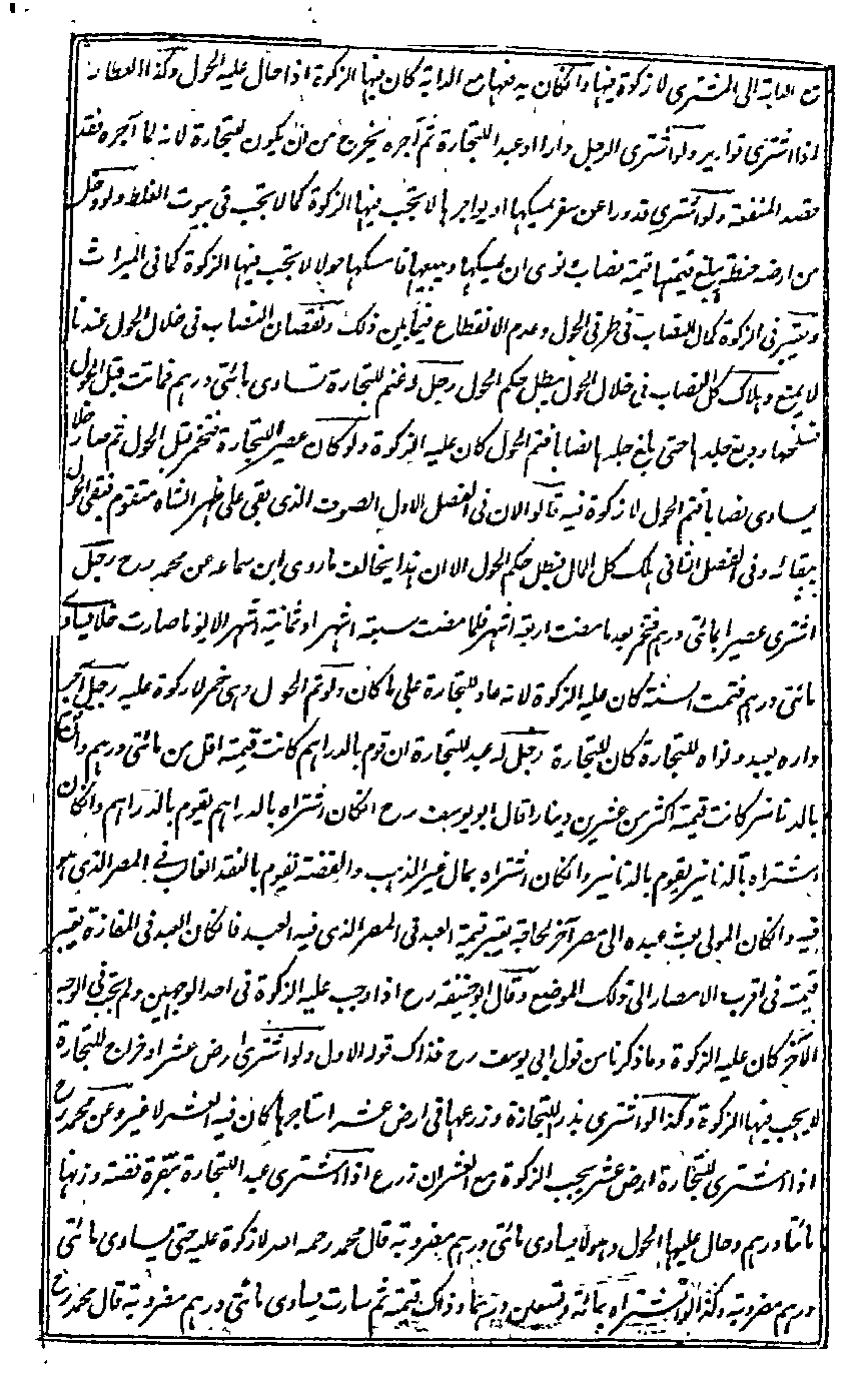 مع الدابة الى المشترى لا زكوة فيها وانكان يدفعها مع الدابة كان فيها الزكوة اذا حال عليه الحول وكذا العطار
اذا اشترى قوارير ولو اشترى الرجل دارا او عبدا للتجارة ثم آجره يخرج من ان يكون للتجارة لانه لما آجره فقد
قصد المنفعة ولو اشترى قدورا من صفر يمسكها او يواجرها لا تجب فيها الزكوة كما لا تجب فى بيوت الغلة ولو دخل
من ارضه حنطة يبلغ قيمتها قيمة نصاب نوى ان يمسكها ويبيعها فامسكها حولا لا تجب فيها الزكوة كما فى الميراث
ويعتبر فى الزكوة كمال النصاب فى طرفى الحول وعدم الانقطاع فيما بين ذلك ونقصان النصاب فى خلال الحول عندنا
لا يمنع وهلاك كل النصاب فى خلال الحول يبطل حكم الحول رجل له غنم للتجارة تساوى مائتى درهم فماتت قبل الحول
فسلخها ودبغ جلدها حتى بلغ جلدها نصابا فتم الحول كان عليه الزكوة ولو كان عصير للتجارة فتخمر قبل الحول ثم صار خلا
يساوى نصابا فتم الحول لا زكوة فيه قالوا لان فى الفصل الاول الصوف الذى بقى على ظهر الشاة متقوم فبقى الحول
ببقائه وفى الفصل الثانى هلك كل المال فبطل حكم الحول الا ان هذا يخالف ما روى ابن سماعه عن محمد رح رجل
اشترى عصيرا بمائتى درهم فتخمر بعد ما مضت اربعة اشهر فلما مضت سبعة اشهر او ثمانية اشهر الا يوما صارت خلا يساوى
مائتى درهم فتمت السنة كان عليه الزكوة لانه عاد للتجارة على ما كان ولو تم الحول وهى خمر لا زكوة عليه رجل آجر
داره بعبد ونواه للتجارة كان للتجارة رجل له عبد للتجارة ان قوم بالدراهم كانت قيمته اقل من مائتى درهم وان قوم
بالدنانير كانت قيمته اكثر من عشرين دينارا قال ابو يوسف رح انكان اشتراه بالدراهم يقوم بالدراهم وانكان
اشتراه بالدنانير يقوم بالدنانير وانكان اشتراه بمال غير الذهب والفضة يقوم بالنقد الغالب فى المصر الذى هو
فيه وانكان المولى بعث عبده الى مصر آخر لحاجة يعتبر قيمة العبد فى المصر الذى فيه العبد فانكان العبد فى المفازة يعتبر
قيمته فى اقرب الامصار الى ذلك الموضع وقال ابو حنيفة رح اذا وجب عليه الزكوة فى احد الوجهين ولم تجب فى الوجه
الآخر كان عليه الزكوة وما ذكرنا من قول ابى يوسف رح فذاك قوله الاول ولو اشترى ارض عشر او خراج للتجارة
لا يجب فيها الزكوة وكذا لو اشترى بذرا للتجارة وزرعها فى ارض عشر استاجرها كان فيه العشر لا غير وعن محمد رح
اذا اشترى للتجارة ارض عشر يجب الزكوة مع العشر ان زرع اذا اشترى عبدا للتجارة بنقرة فضة وزنها
مائتا درهم وحال عليها الحول وهو لا يساوى مائتى درهم مضروبة قال محمد رحمه الله لا زكوة عليه حتى يساوى مائتى
درهم مضروبة وكذا لو اشتراه بمائة وتسعين درهما وذلك قيمته ثم صارت يساوى مائتى درهم مضروبة قال محمد رح